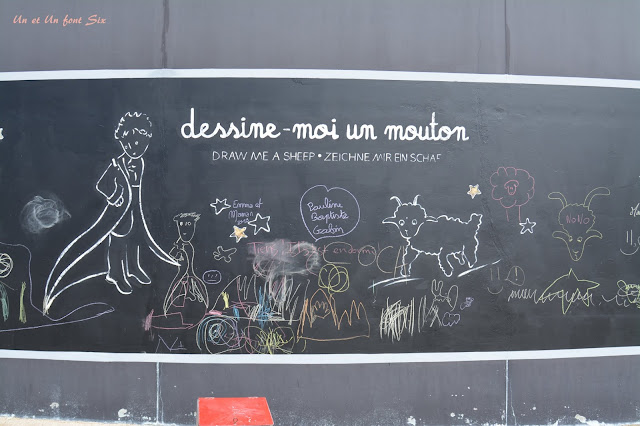 Un et Un font Six
dessine-moi un mouton
DRAW ME A SHEEP • ZEICHNE MIR EIN SCHAF
Emma et
Maman
Pauline
Baptiste
NoNo